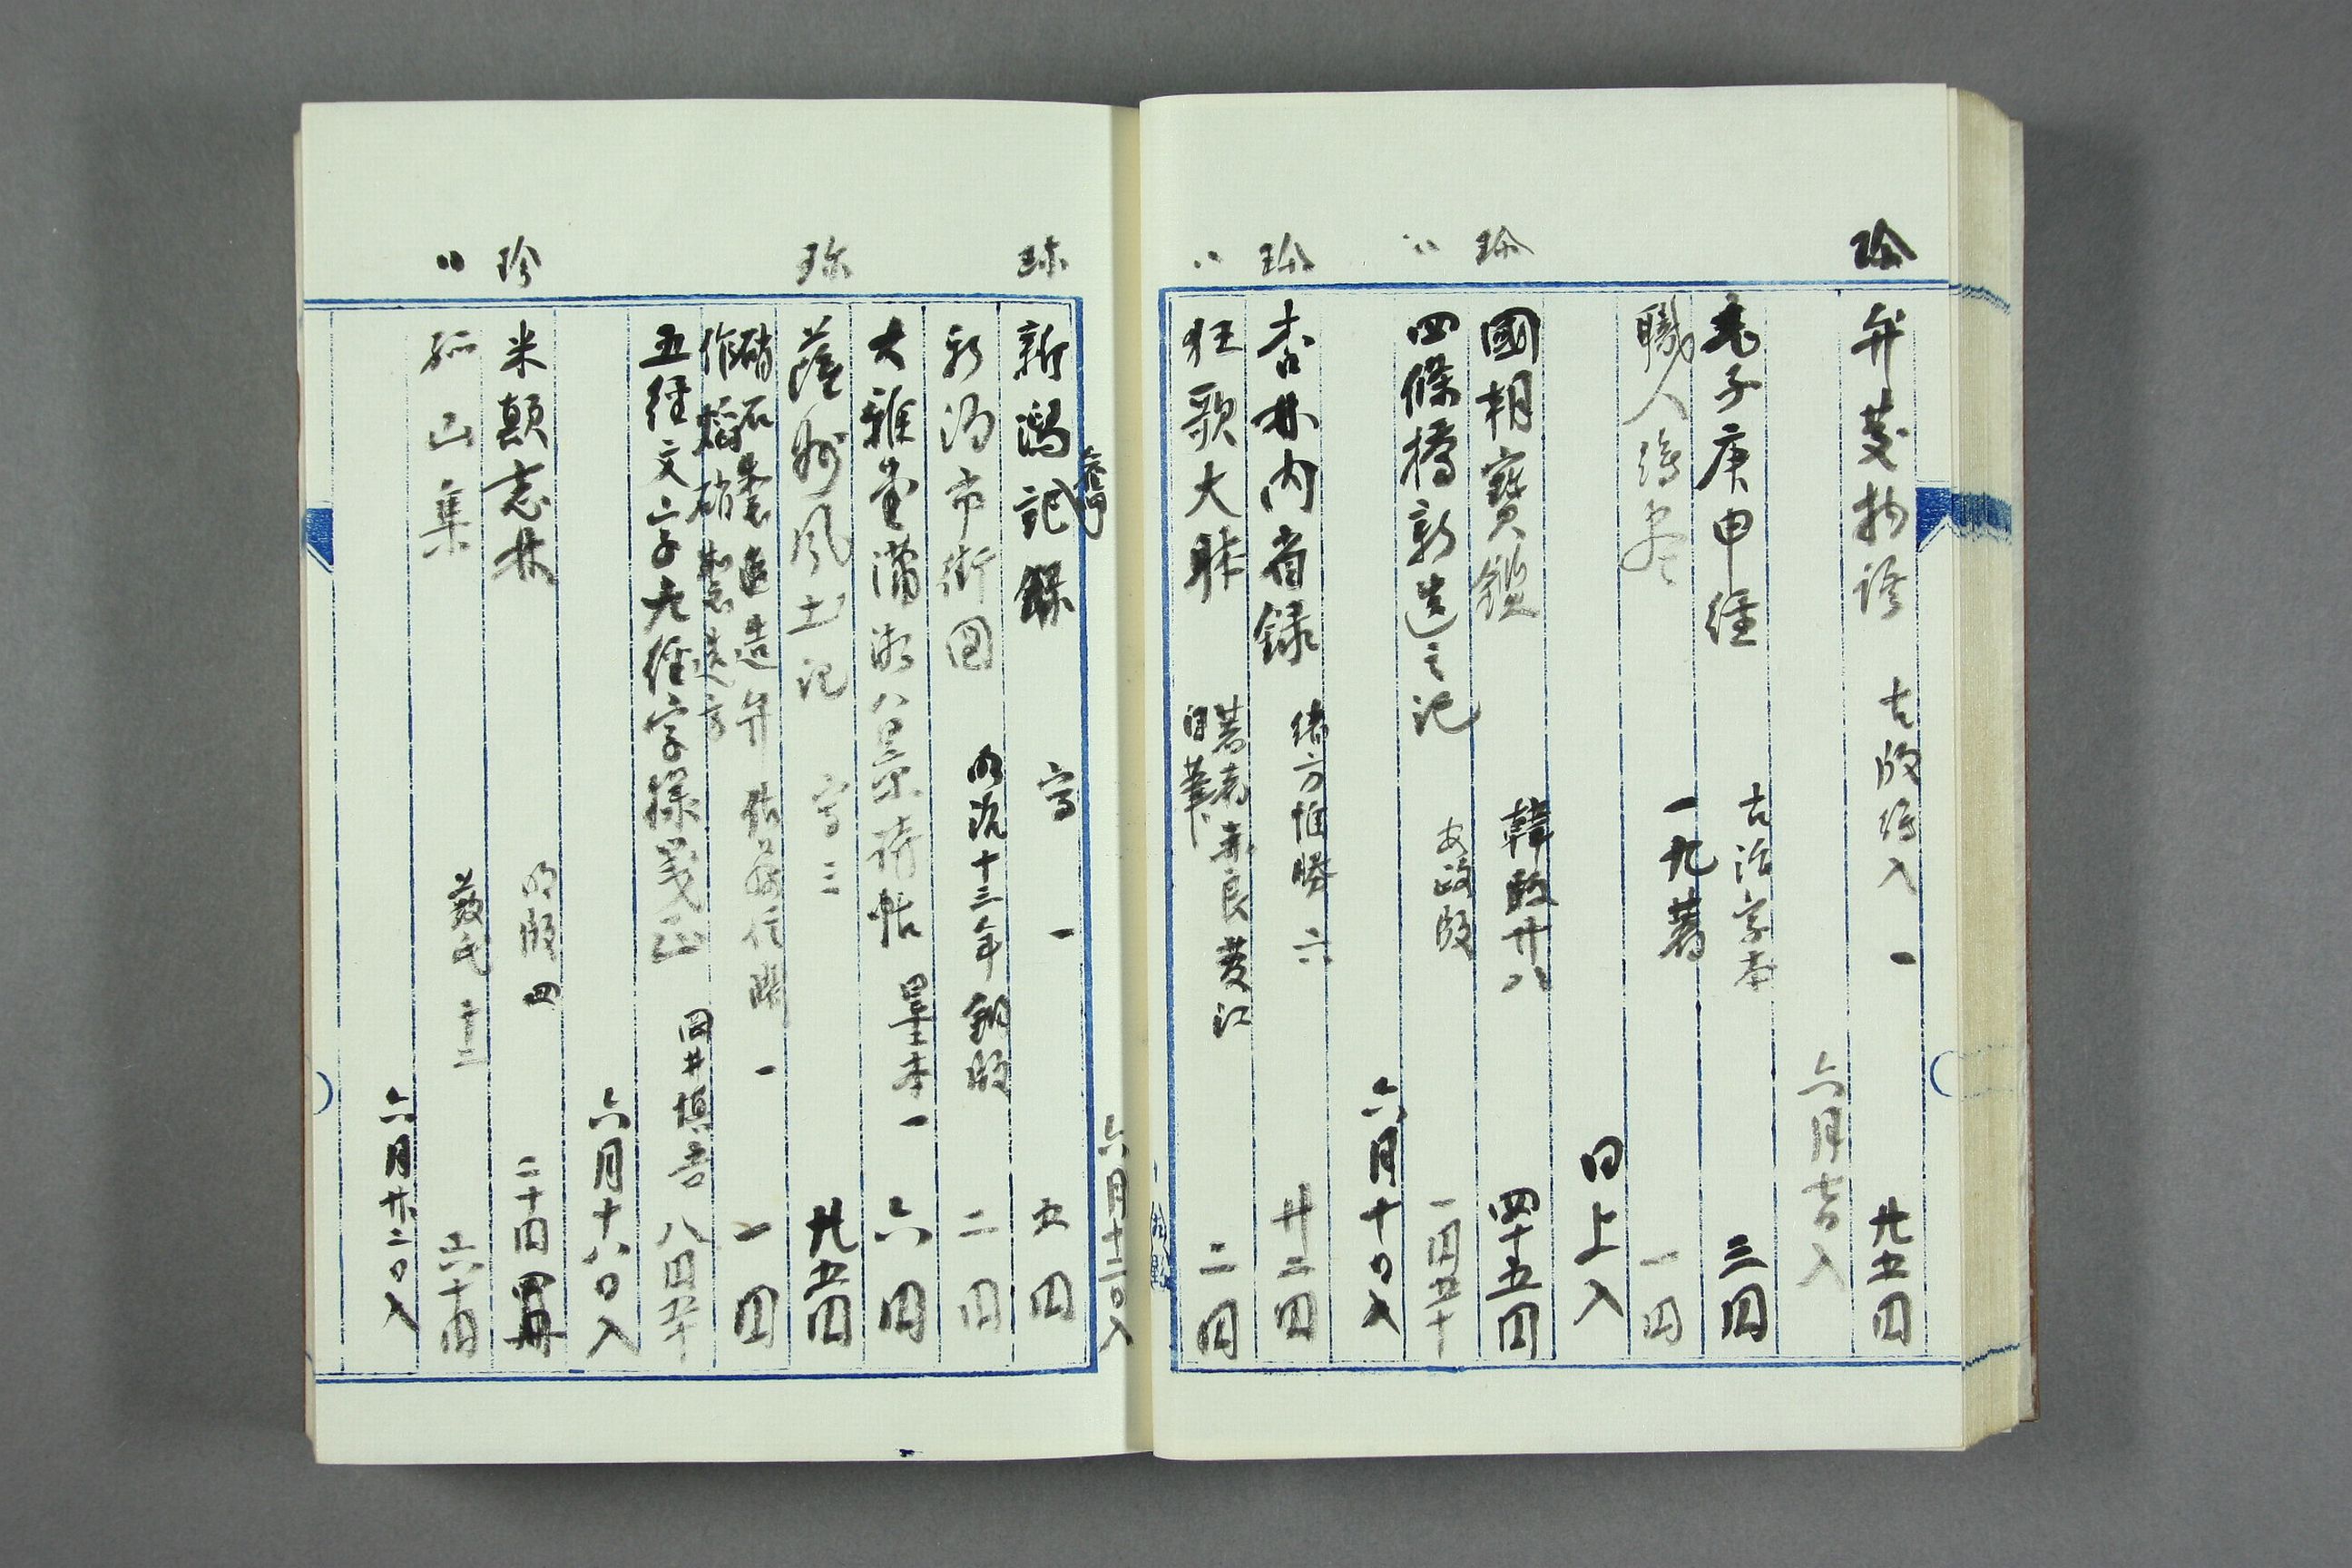 珍
弁慶物語 古版絵入 一 廿五円
六月七日入
老子庚申経 古活字本 三円
職人絵尽 一九著 一円
同上入
珍
國朝寶鑑 韓版廿八 四十五円
〃
四條橋新造之記 安政版 一円五十
六月十日入
珍
杏林内省録 緒方惟勝 六 廿二円
〃
狂歌大昧 著者 奈良菱江 自筆 二円
六月十二日入
珍
新潟記録 写 一 五円
新潟市街図 明治十三年銅版 二円
大雅堂瀟湘八景詩帖 墨本一 六円
珍
薩州風土記 写 三 廿五円
硝石製造弁 佐藤信問 一 一円
作焔硝製造方
五経文字九経字様箋正 岡井慎吾 八円五十
六月十八日入
珍
米顛志林 明版 四 二十円
〃
孤山集 薮氏 十二 六十円
六月廿二日入